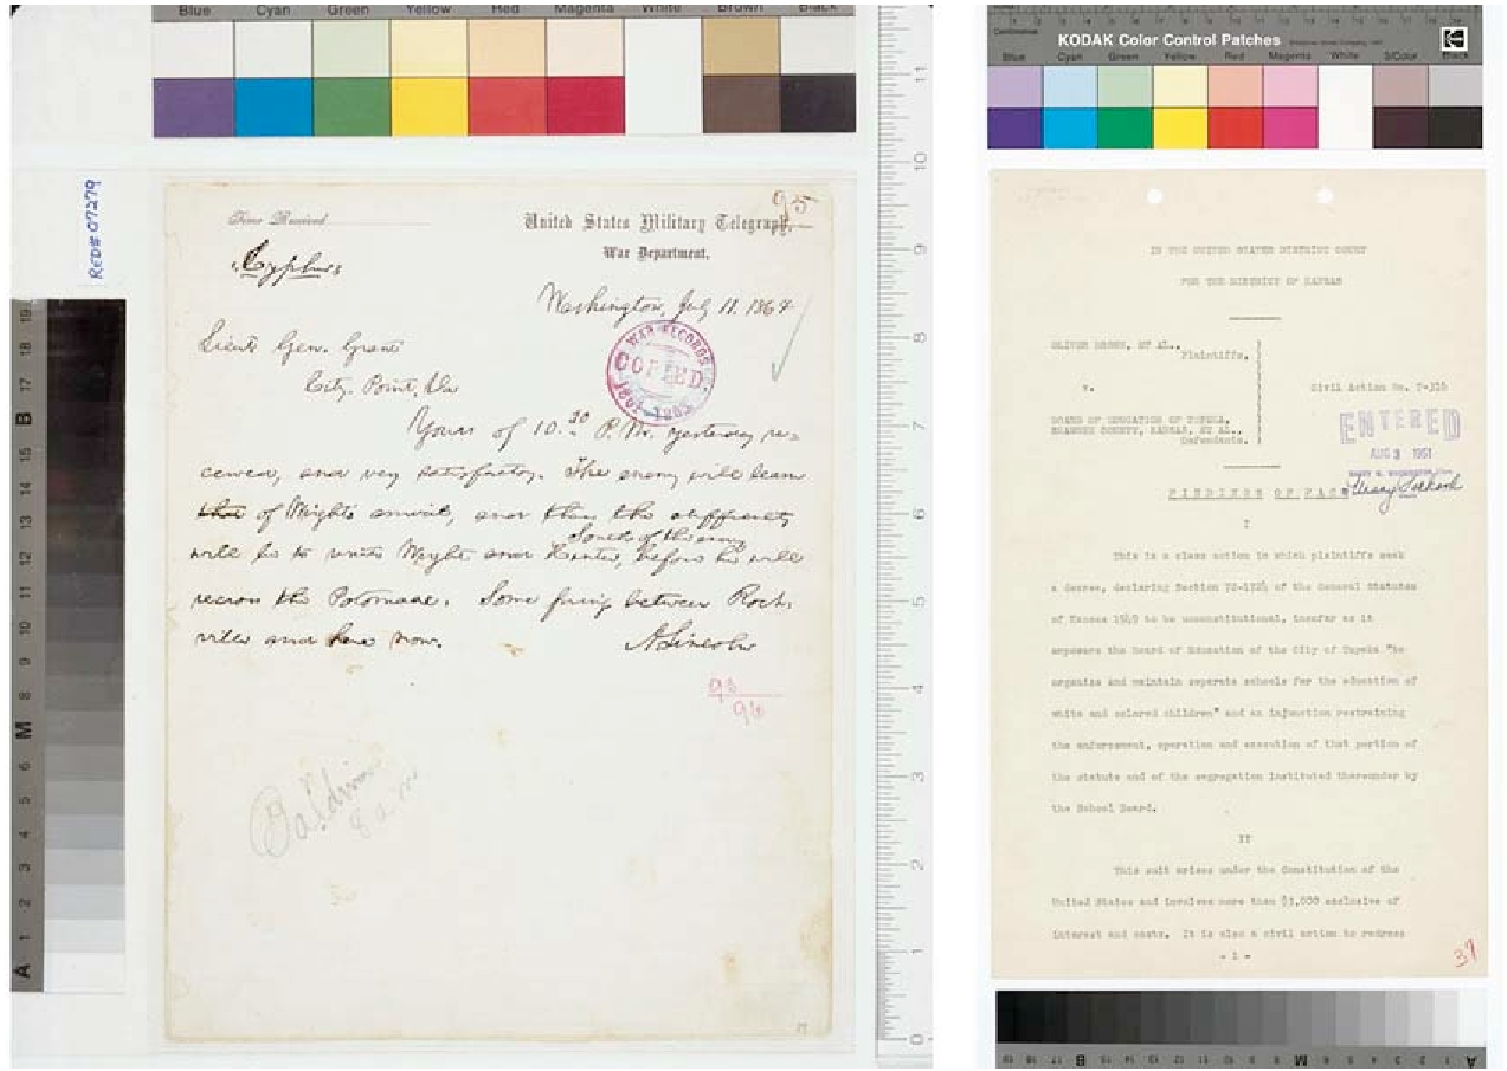 Blue Cyan Green Yellow Red Magenta White Brown Black
RED# 07279
95
Time Received
United States Military Telegraph,
War Department.
Cypher
Washington, July 11. 1864
Lieut. Gen. Grant
City Point, Va
WAR RECORDS
COPIED.
1861-1865
Yours of 10.30 P.M. yesterday re-
ceived, and very satisfactory. The enemy will learn
that of Wright's arrival, and then the difficulty
South of the enemy
will be to unite Wright and Hunter, before he will
recross the Potomac. Some firing between Rock-
ville and here now.
A. Lincoln
93
96
Baldwin
8 a.m.
11
10
9
8
7
6
5
4
3
2
1
0
19
18
17
B
15
14
13
12
11
10
9
8
M
6
5
4
3
2
1
A
KODAK Color Control Patches
Blue Cyan Green Yellow Red Magenta White 3/Color Black
IN THE UNITED STATES DISTRICT COURT
FOR THE DISTRICT OF KANSAS
OLIVER BROWN, ET AL.,
Plaintiffs,
v.
Civil Action No. T-316
BOARD OF EDUCATION OF TOPEKA,
SHAWNEE COUNTY, KANSAS, ET AL.,
Defendants.
ENTERED
AUG 3 1951
FINDINGS OF FACT
I
This is a class action in which plaintiffs seek
a decree, declaring Section 72-1724 of the General Statutes
of Kansas 1949 to be unconstitutional, insofar as it
empowers the Board of Education of the City of Topeka "to
organize and maintain separate schools for the education of
white and colored children" and an injunction restraining
the enforcement, operation and execution of that portion of
the statute and of the segregation instituted thereunder by
the School Board.
II
This suit arises under the Constitution of the
United States and involves more than $3,000 exclusive of
interest and costs. It is also a civil action to redress
- 1 -
39
19 18 17 B 15 14 13 12 11 10 9 8 M 6 5 4 3 2 1 A